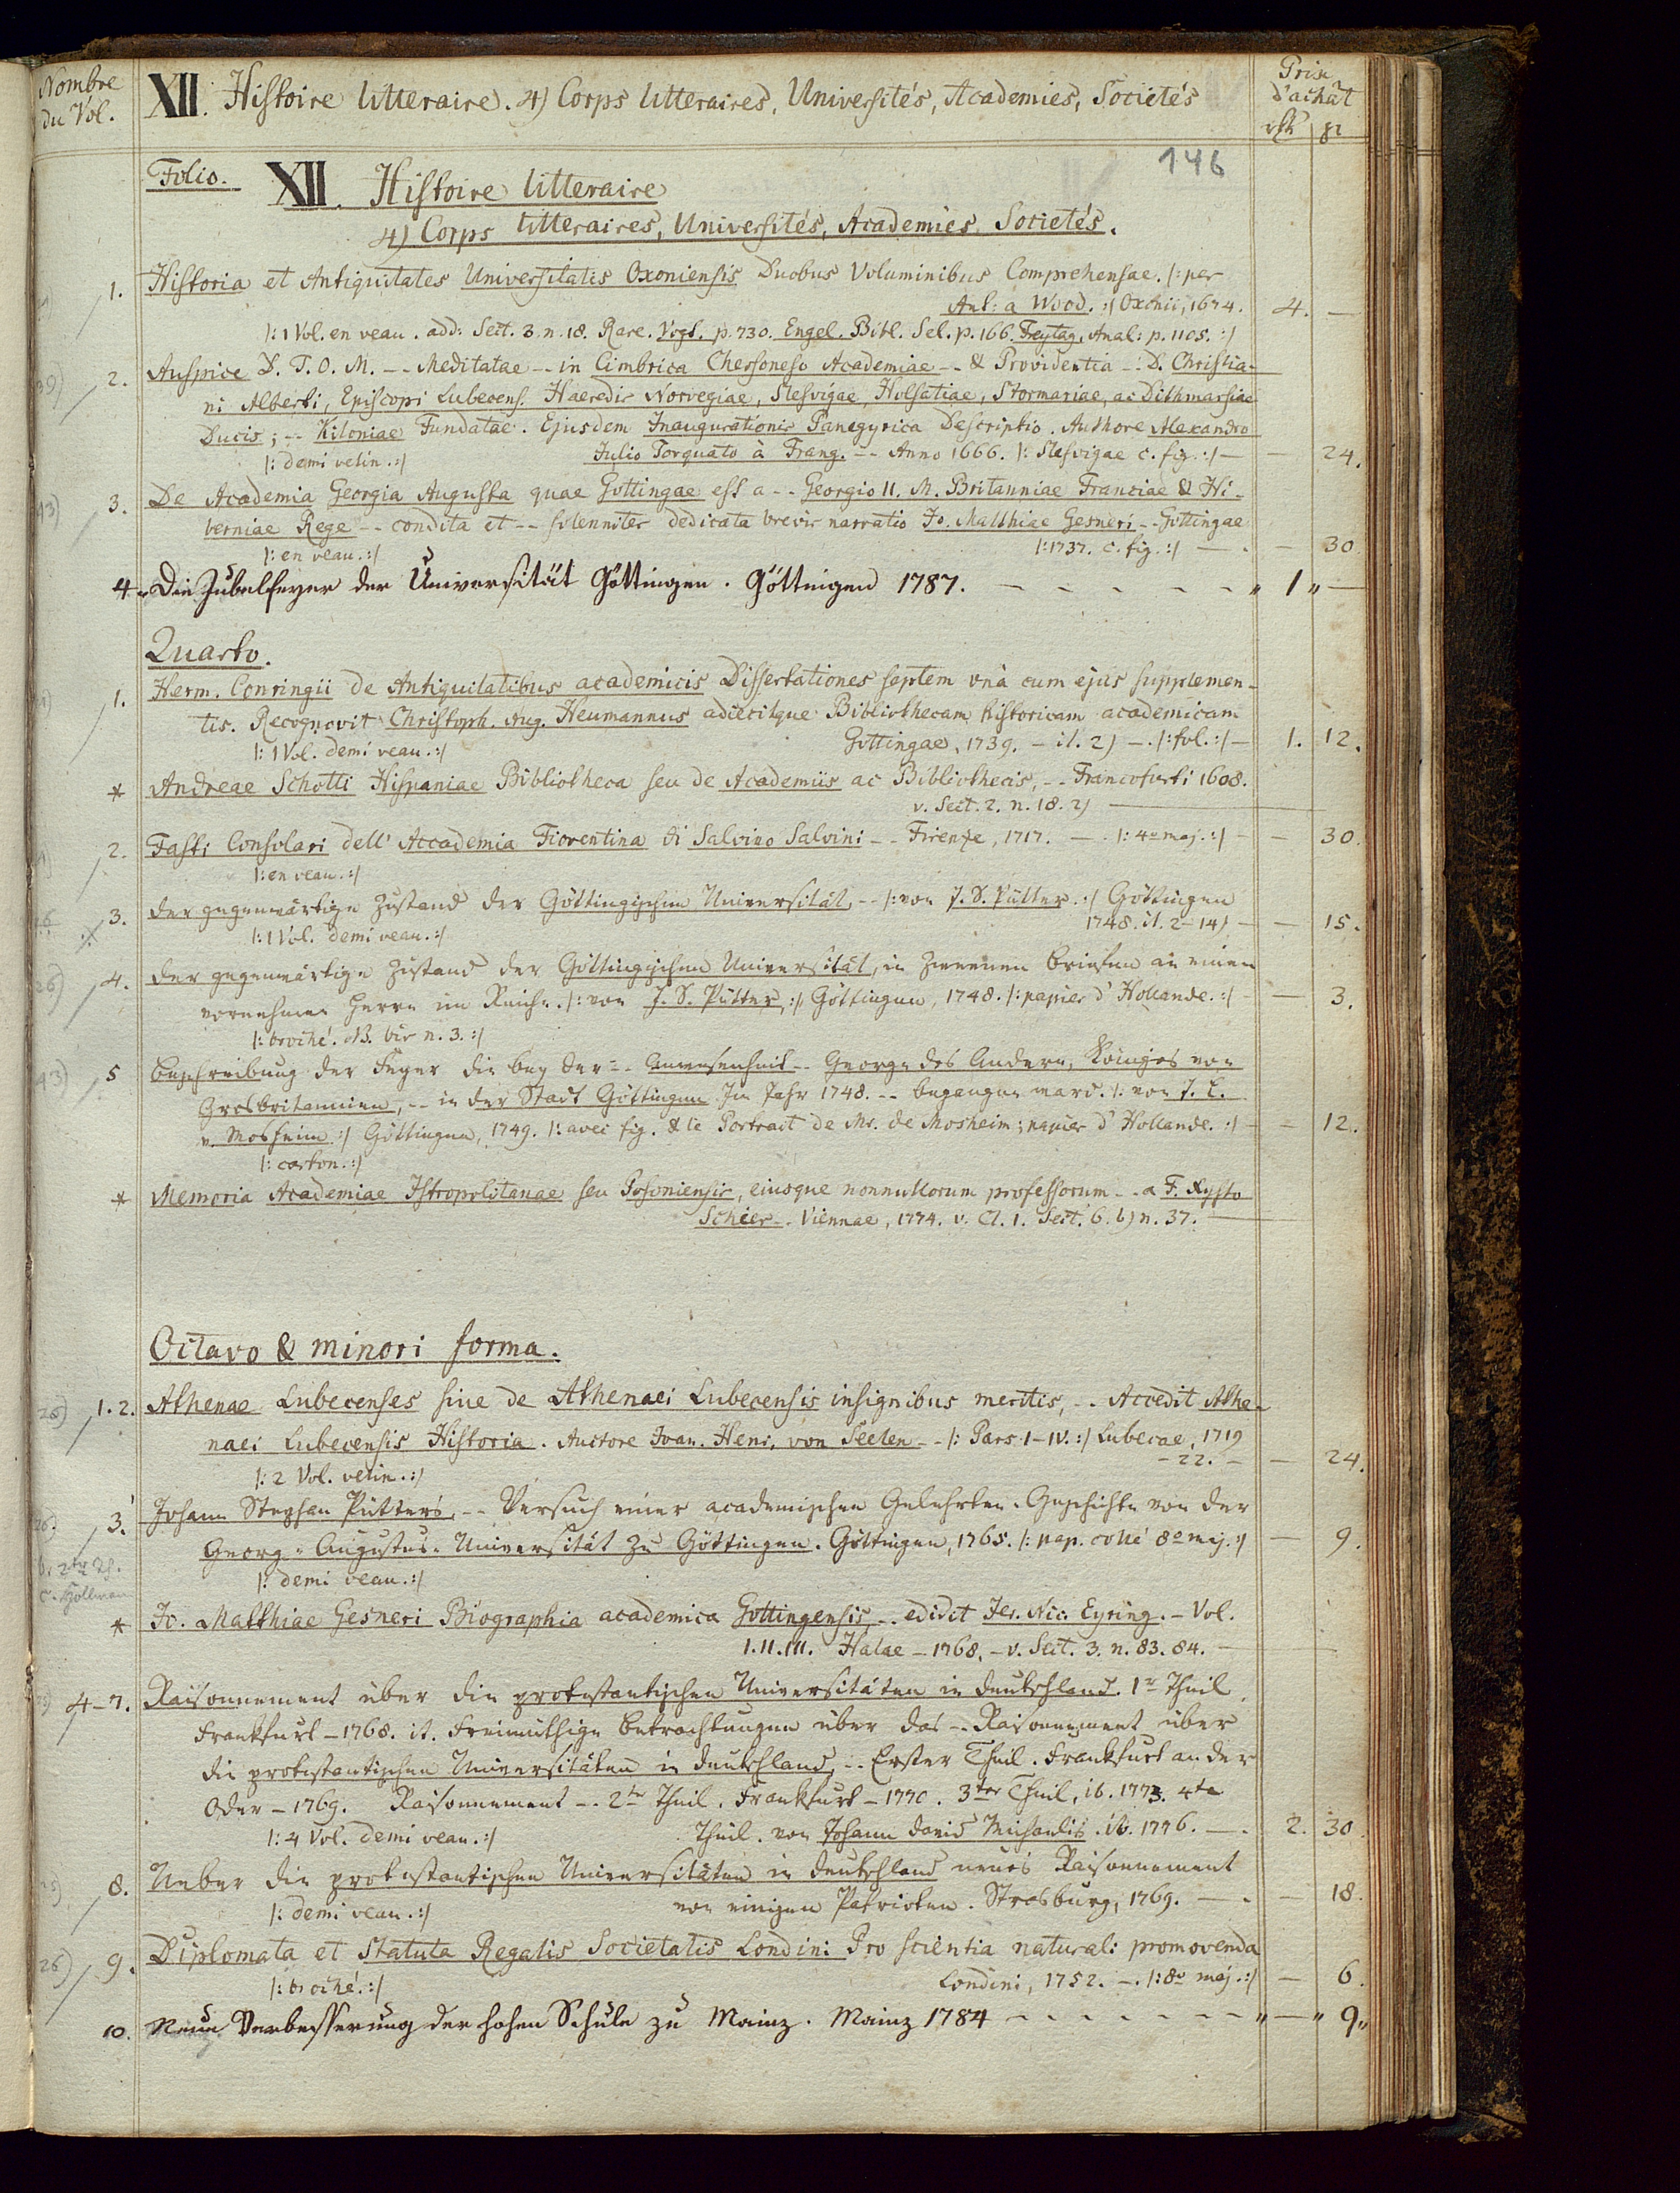 Nombre du Vol.
XII. Histoire litteraire. 4) Corps litteraires, Universités, Academies, Societés
Prix d'achât
146
Folio.
XII. Histoire litteraire
4) Corps litteraires, Universités, Academies Societés.
1. Historia et Antiquitates Universitatis Oxoniensis Duobus Voluminibus Comprehensae. /: per
Ant: a Wood. :/ Oxonii, 1674. 4. —
/: 1 Vol. en veau. add: Sect. 3. n. 18. Rare. Vogt. p. 730. Engel. Bibl. Sel. p. 166. Freytag. Anal: p. 1105. :/
2. Auspice D. T. O. M. -- Meditatae -- in Cimbrica Chersoneso Academiae -- & Providentia -- D. Christia-
ni Alberti, Episcopi Lubecens. Haeredis Norvegiae, Slesvigae, Holsatiae, Stormariae, ac Dithmarsiae
Ducis; -- Kiloniae Fundatae. Ejusdem Inaugurationis Panegyrica Descriptio. Authore Alexandro
/: demi velin. :/ Julio Torquato à Frang. -- Anno 1666. /: Slesvigae c. fig. :/ — — 24.
3. De Academia Georgia Augusta quae Gottingae est a -- Georgio II. M. Britanniae Franciae & Hi-
berniae Rege -- condita et -- solenniter dedicata brevis narratio Jo. Matthiae Gesneri -- Gottingae
/: en veau. :/ /: 1737. c. fig. :/ — — 30
4. Die Jubelfeyer der Universität Göttingen. Göttingen 1787. - - - - - - " 1 " —
Quarto.
1. Herm. Conringii de Antiquitatibus academicis Dissertationes septem unà cum ejus supplemen-
tis. Recognovit Christoph. Aug. Heumannus adiecitque Bibliothecam historicam academicam
/: 1 Vol. demi veau. :/ Gottingae, 1739. — it. 2) —. /: fol. :/ — 1. 12.
* Andreae Schotti Hispaniae Bibliotheca seu de Academiis ac Bibliothecis, -- Francofurti 1608.
v. Sect. 2. n. 18. 2) —
2. Fasti Consolari dell' Accademia Fiorentina di Salvino Salvini -- Firenze, 1717. — . /: 4o maj. :/ — 30.
/: en veau. :/
3. Der gegenwärtige Zustand der Göttingischen Universität, -- /: von J. S. Pütter. :/ Göttingen
/: 1 Vol. demi veau. :/ 1748. it. 2-14) — — 15.
4. Der gegenwärtige Zustand der Göttingischen Universität, in Zweenen Briefen an einen
vornehmen Herrn im Reiche. /: von J. S. Pütter, :/ Göttingen, 1748. /: papier d'Hollande. :/ — 3.
/: broché. NB. bis n. 3. :/
5 Beschreibung der Feyer die bey der -- Anwesenheit -- George des Andern, Königes von
Grosbritannien, -- in der Stadt Göttingen Im Jahr 1748. -- begangen ward. /: von J. L.
v. Mosheim :/ Göttingen, 1749. /: avec fig. & le Portrait de Mr. de Mosheim; papier d'Hollande. :/ — 12.
/: carton. :/
* Memoria Academiae Istropolitanae seu Posoniensis, eiusque nonnullorum professorum -- a F. Xysto
Schier -- Viennae, 1774. v. Cl. 1. Sect. 6. b) n. 37. —
Octavo & minori forma.
1. 2. Athenae Lubecenses sive de Athenaei Lubecensis insignibus meritis, -- Accedit Athe-
naei Lubecensis Historia. Auctore Joan. Henr. von Seelen -- /: Pars I-IV. :/ Lubecae, 1719
/: 2 Vol. velin. :/ -22. — — 24.
3. Johann Stephan Pütters, -- Versuch einer academischen Gelehrten-Geschichte von der
Georg-Augustus-Universität zu Göttingen. Göttingen, 1765. /: pap. collé 8o maj. :/ — 9.
/: demi veau. :/
* Jo. Matthiae Gesneri Biographia academica Gottingensis, -- edidit Jer. Nic. Eyring. — Vol.
I. II. III. Halae — 1768. — v. Sect. 3. n. 83. 84. —
4-7. Raisonnement über die protestantischen Universitäten in Deutschland. 1r Theil.
Frankfurt — 1768. it. Freimüthige Betrachtungen über das -- Raisonnement über
die protestantischen Universitäten in Deutschland, -- Erster Theil. Frankfurt an der
Oder — 1769. Raisonnement -- 2ter Theil. Frankfurt — 1770. 3ter Theil, ib. 1773. 4te
/: 4 Vol. demi veau. :/ Theil. von Johann David Michaelis. ib. 1776. —. 2. 30.
8. Ueber die protestantischen Universitäten in Deutschland neues Raisonnement
/: demi veau. :/ von einigen Patrioten. Strasburg, 1769. — . — 18.
9. Diplomata et Statuta Regalis Societatis Londini Pro scientia naturali promovenda
/: broché. :/ Londini, 1752. —. /: 8o maj. :/ — 6.
10. Neue Verbesserung der hohen Schule zu Mainz. Mainz 1784 - - - - - - - " — " 9 "